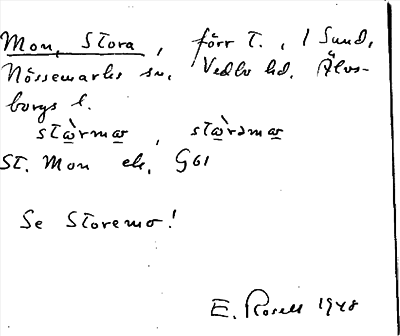 Mon, Stora, förr T., / Sund,
Nössemarks sn. Vedbo hd. Älvs-
borgs l.
stæ̀rmæ, stæ̀rəmæ
St. Mon ek. G61
Se Storemo!
E. Rosell 1948